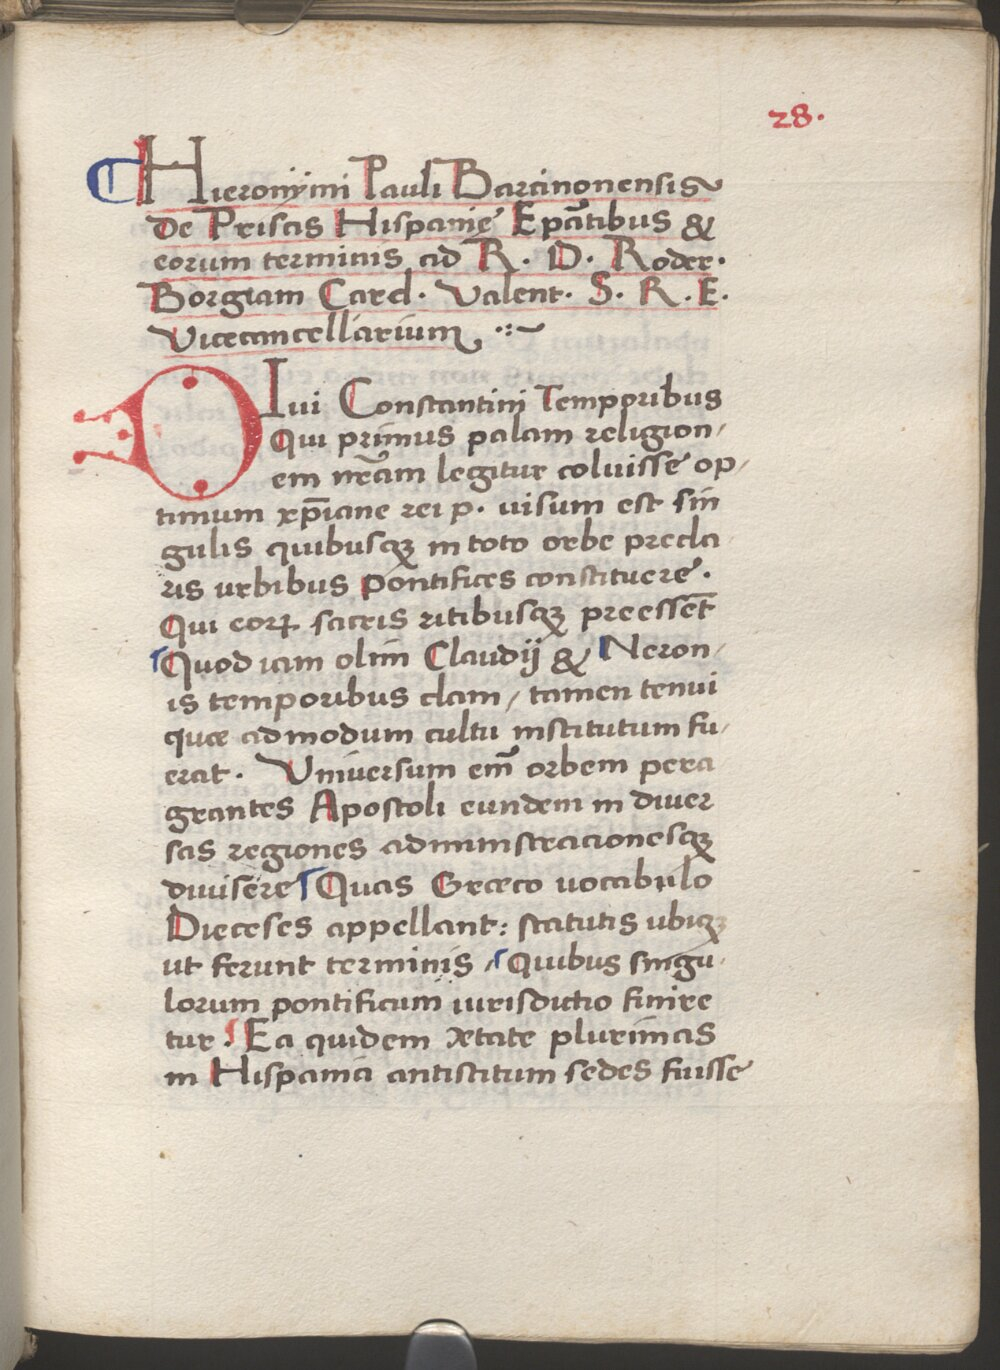 28.
Hieronÿmi Pauli Barcinonensis
de Priscis Hispanię Ep̄atibus &
eorum terminis ad R. D. Roder.
Borgiam Card. Valent. S. R. E.
Vicecancellarium
DIui Constantini Temporibus
Qui primus palam religion/
em nr̄am legitur coluisse op/
timum xp̄iane rei p. uisum est sin
gulis quibusqꝫ in toto orbe precla
ris urbibus pontifices constituere.
Qui eorꝝ sacris ritibusqꝫ preessēt
Quod iam olim Claudij & Neron/
is temporibus clam / tamen tenui
quae admodum cultu institutum fu/
erat. Vniuersum em̄ orbem pera
grantes Apostoli eundem in diuer
sas regiones administracionesqꝫ
diuisere Quas Graeco uocabulo
Dieceses appellant: statutis ubiqꝫ
ut ferunt terminis / Quibus singu
lorum pontificum iurisdictio finire
tur. Ea quidem ætate plurimas
in Hispania antistitum sedes fuisse